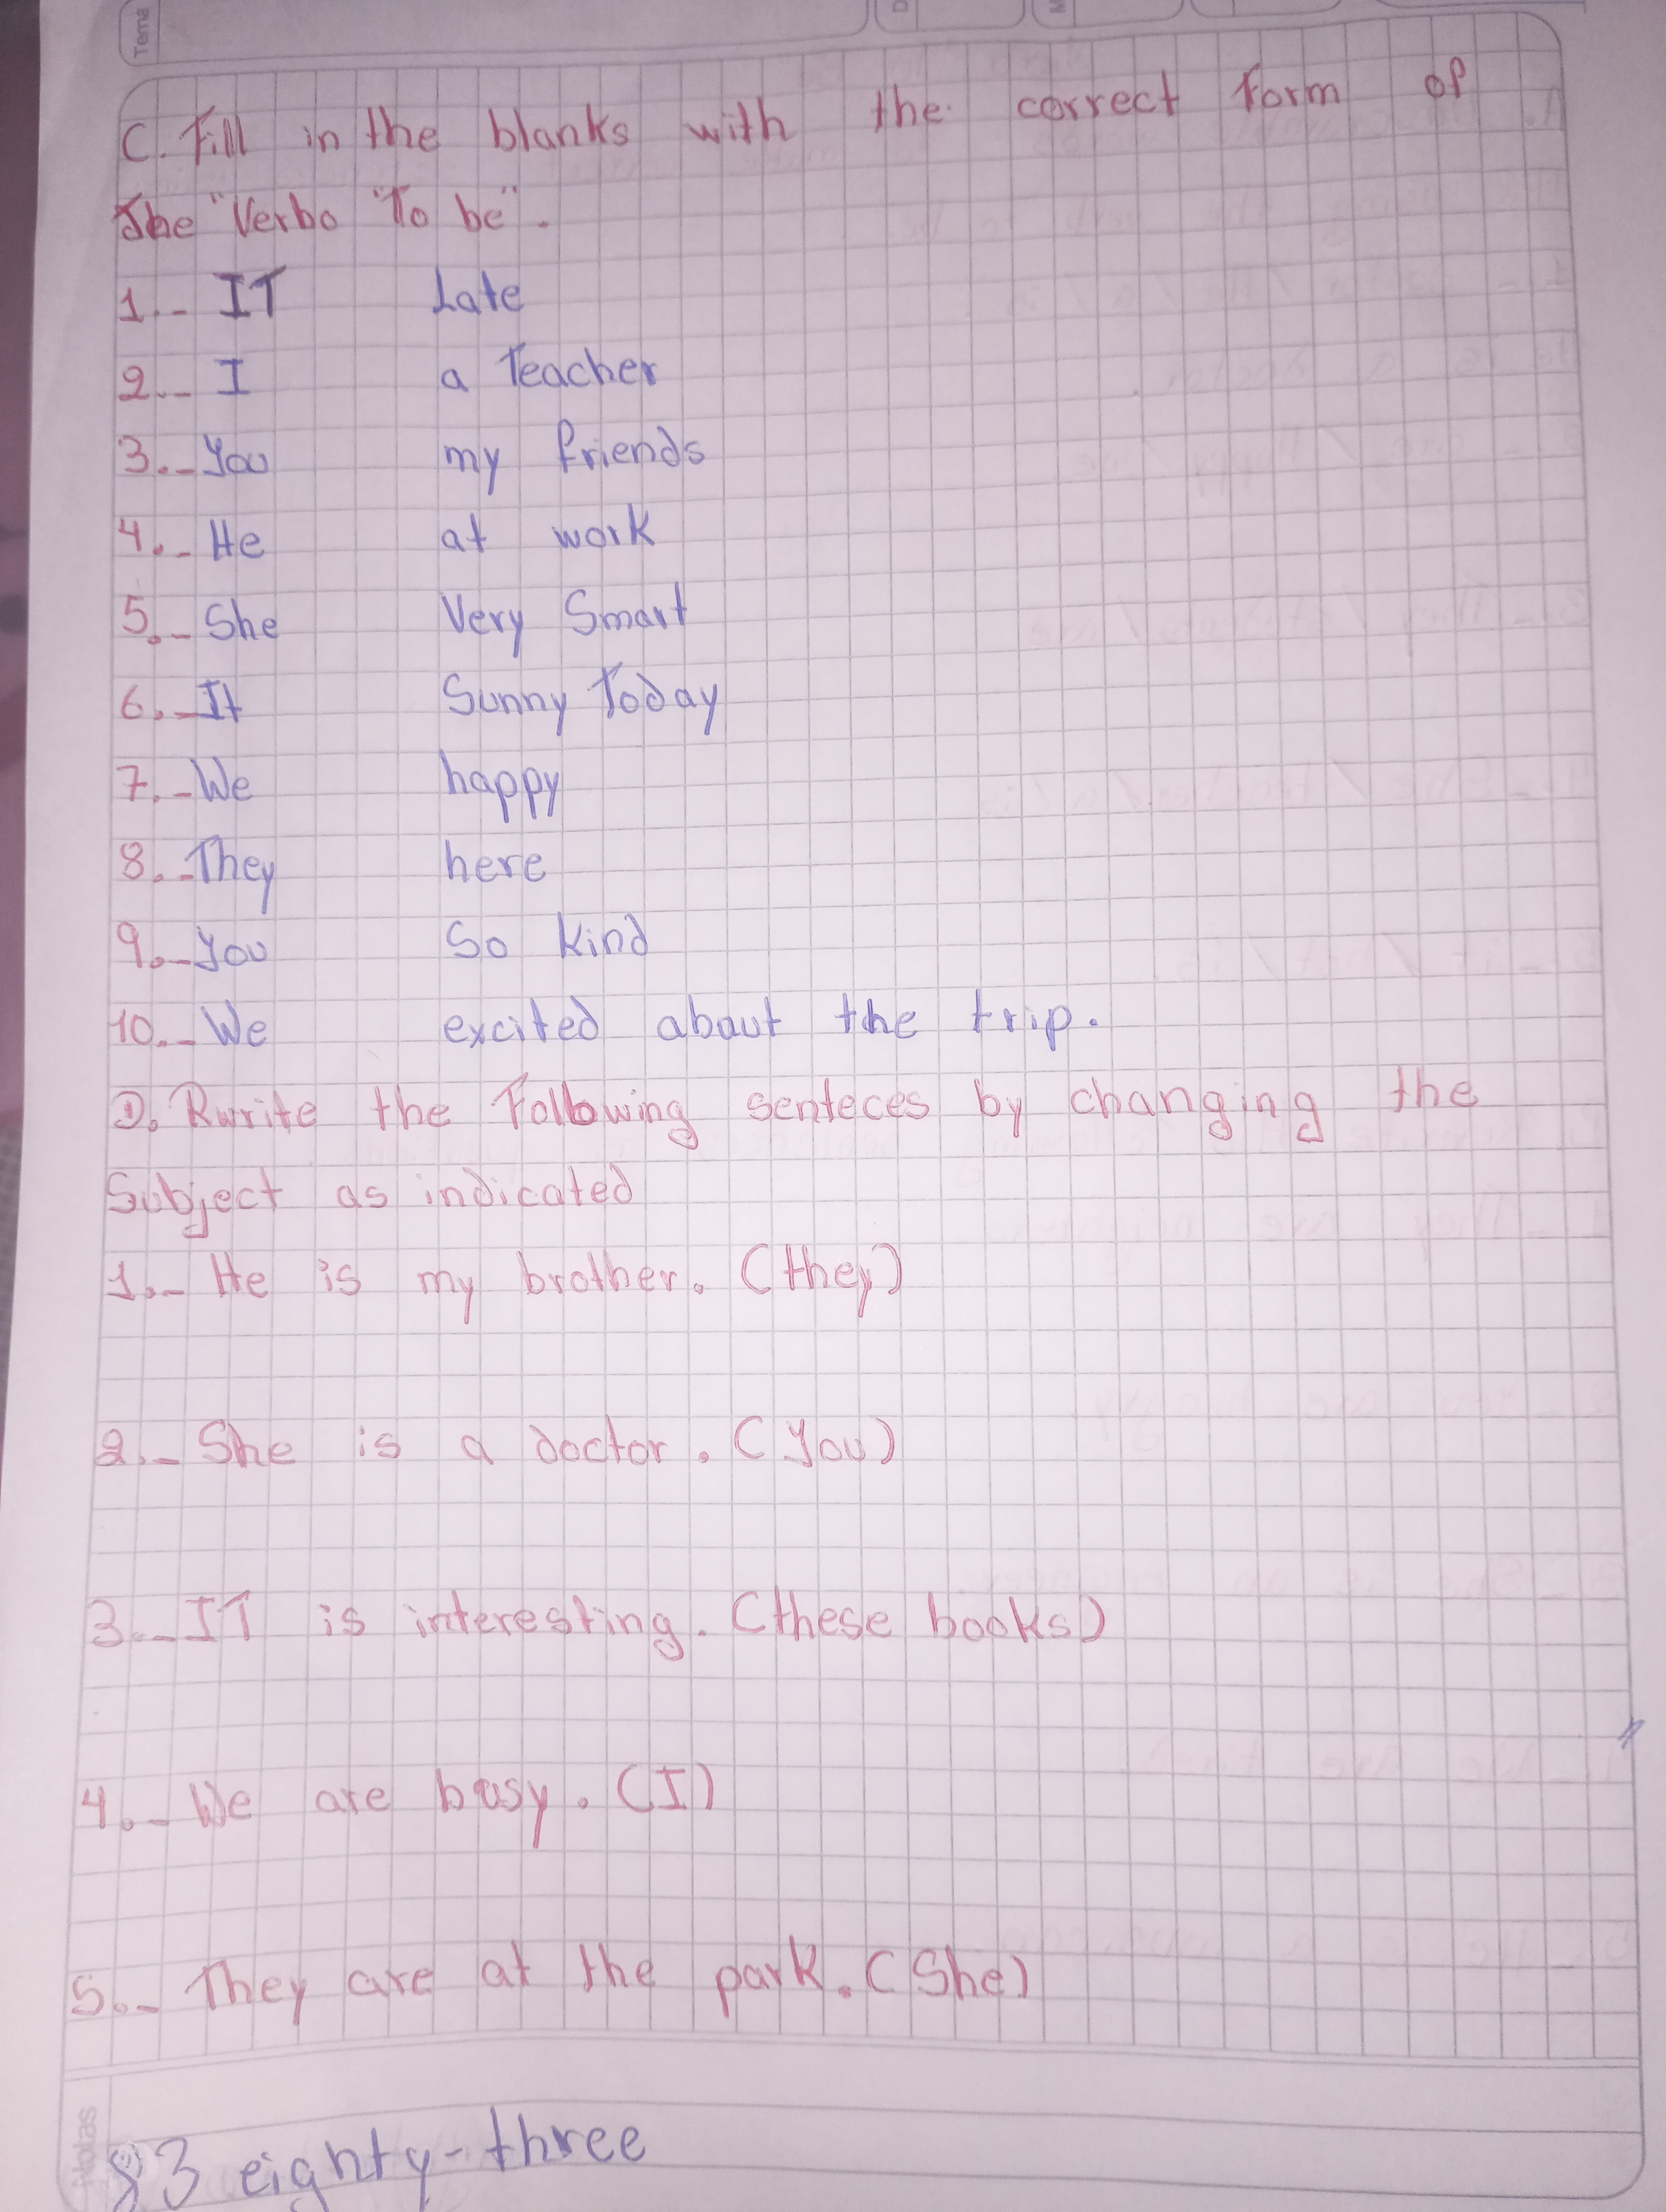 Tema
C. Fill in the blanks with the correct form of
The "Verbo "To be".
1.- IT Late
2.- I a Teacher
3.- You my friends
4.- He at work
5.- She Very Smart
6.- It Sunny Today
7.- We happy
8.- They here
9.- You So kind
10.- We excited abaut the trip.
D. Rwrite the Following senteces by changing the
Subject as indicated
1.- He is my brother. (they)
2.- She is a doctor. (You)
3.- IT is interesting. (these books)
4.- We are busy. (I)
5.- They are at the park. (She)
Notas
83 eighty-three